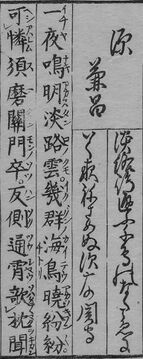 源兼昌
淡路嶋かよふ千鳥のなくこゑに
いく夜ねさめぬ須磨の関守
一夜鳴明淡路雲幾群海鳥曉紛紛
可憐須磨關門卒反側通宵欹枕聞